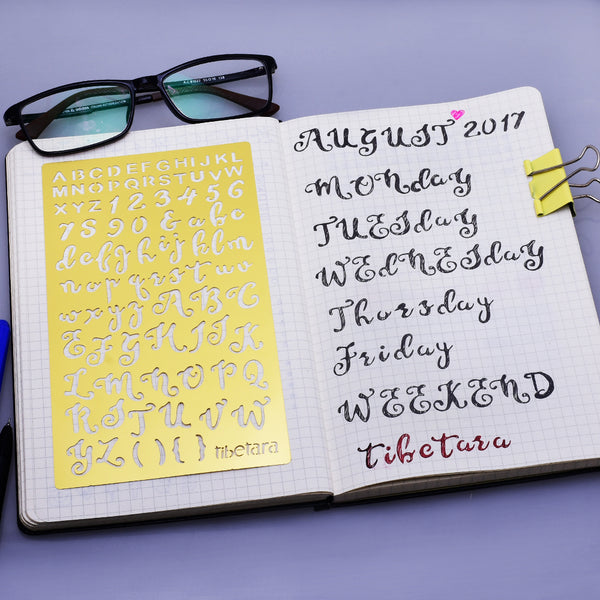 ABCDEFGHIJKL
MNOPQRSTUVW
XYZ123456
7890&abc
defghijklm
nopqrstuv
wxyzABC
EFGHIJK
LMNOPQ
RSTUVW
YZ(){}
tibetara
AUGUST 2017
MONday
TUESday
WEdNESday
Thursday
Friday
WEEKEND
tibetara